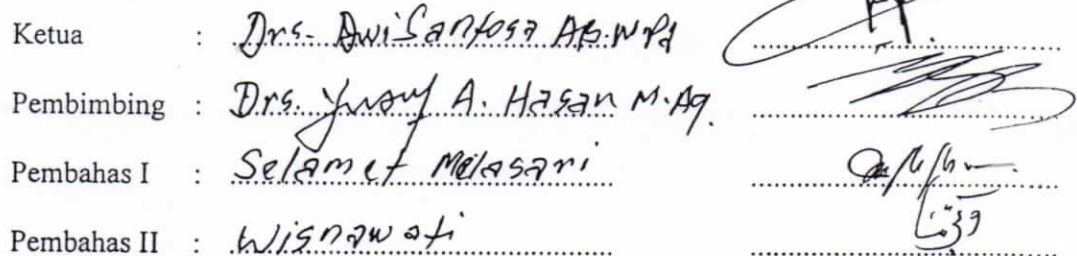 Ketua : Drs. Dwi Santosa AB. M.Pd
Pembimbing : Drs. Yusuf A. Hasan M.Ag.
Pembahas I : Selamet Melasari
Pembahas II : Wisnawati